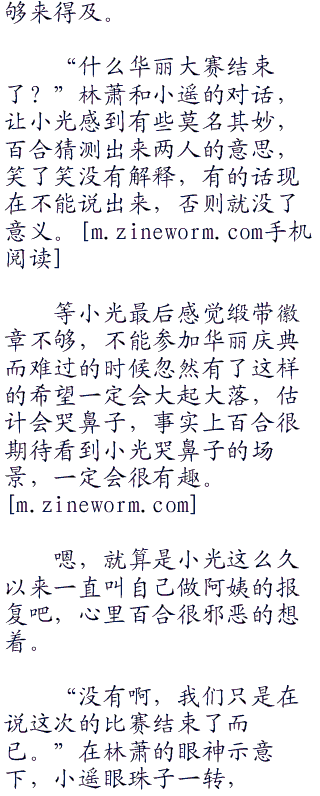 够来得及。
“什么华丽大赛结束
了？”林萧和小遥的对话，
让小光感到有些莫名其妙，
百合猜测出来两人的意思，
笑了笑没有解释，有的话现
在不能说出来，否则就没了
意义。[m.zineworm.com手机
阅读]
等小光最后感觉缎带徽
章不够，不能参加华丽庆典
而难过的时候忽然有了这样
的希望一定会大起大落，估
计会哭鼻子，事实上百合很
期待看到小光哭鼻子的场
景，一定会很有趣。
[m.zineworm.com]
嗯，就算是小光这么久
以来一直叫自己做阿姨的报
复吧，心里百合很邪恶的想
着。
“没有啊，我们只是在
说这次的比赛结束了而
已。”在林萧的眼神示意
下，小遥眼珠子一转，